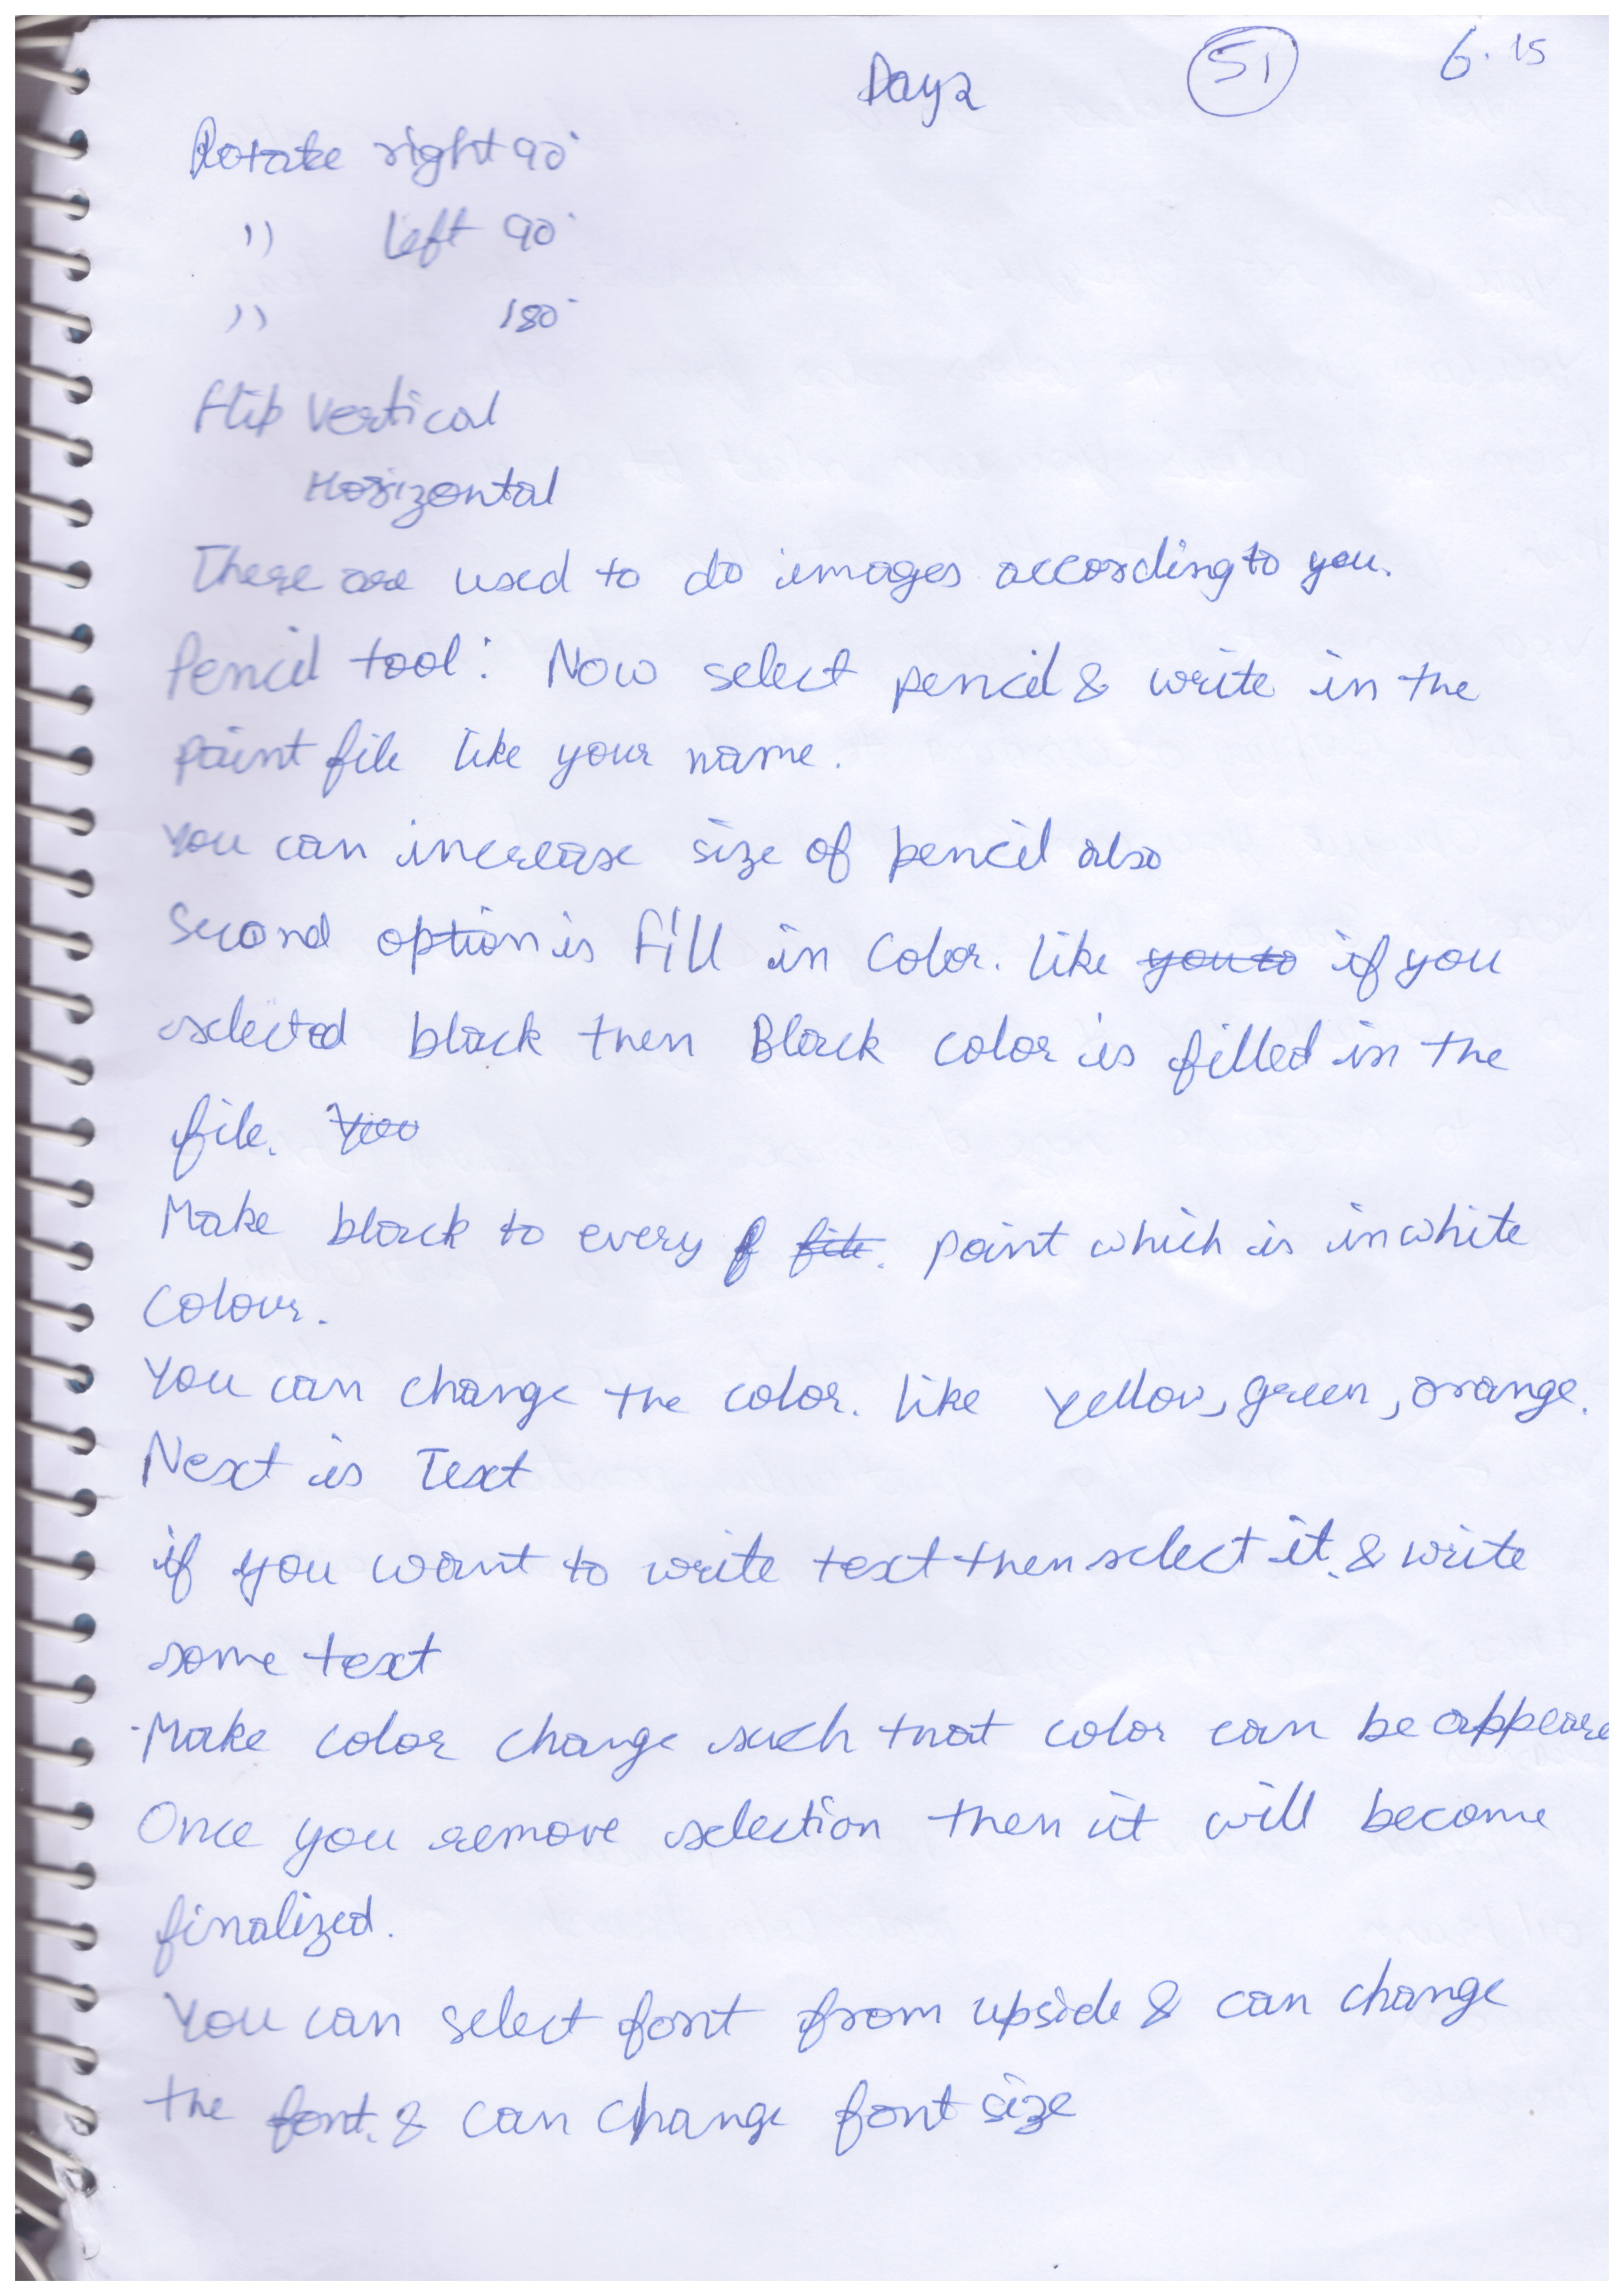 Day 2 51 6.15
Rotate right 90°
" Left 90°
" 180°
Flip Vertical
Horizontal
These are used to do images according to you.
Pencil tool: Now select pencil & write in the
paint file like your name.
You can increase size of pencil also
Second option is Fill in Color. Like you to if you
selected black then Black color is filled in the
file. You
Make black to every f file. paint which is in white
Colour.
You can change the color. Like Yellow, green, orange.
Next is Text
if you want to write text then select it. & write
some text
Make color change such that color can be appeare
Once you remove selection then it will become
finalized.
You can select font from upside & can change
the font. & can change font size